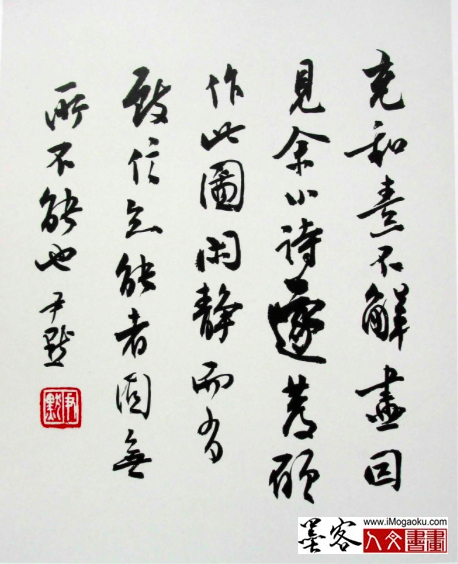 充和素不解畫因
見余小詩遂發願
作此圖閑靜而有
致信知能者固無
所不能也 尹默
尹默
墨客
www.iMogaoku.com
人文書畫